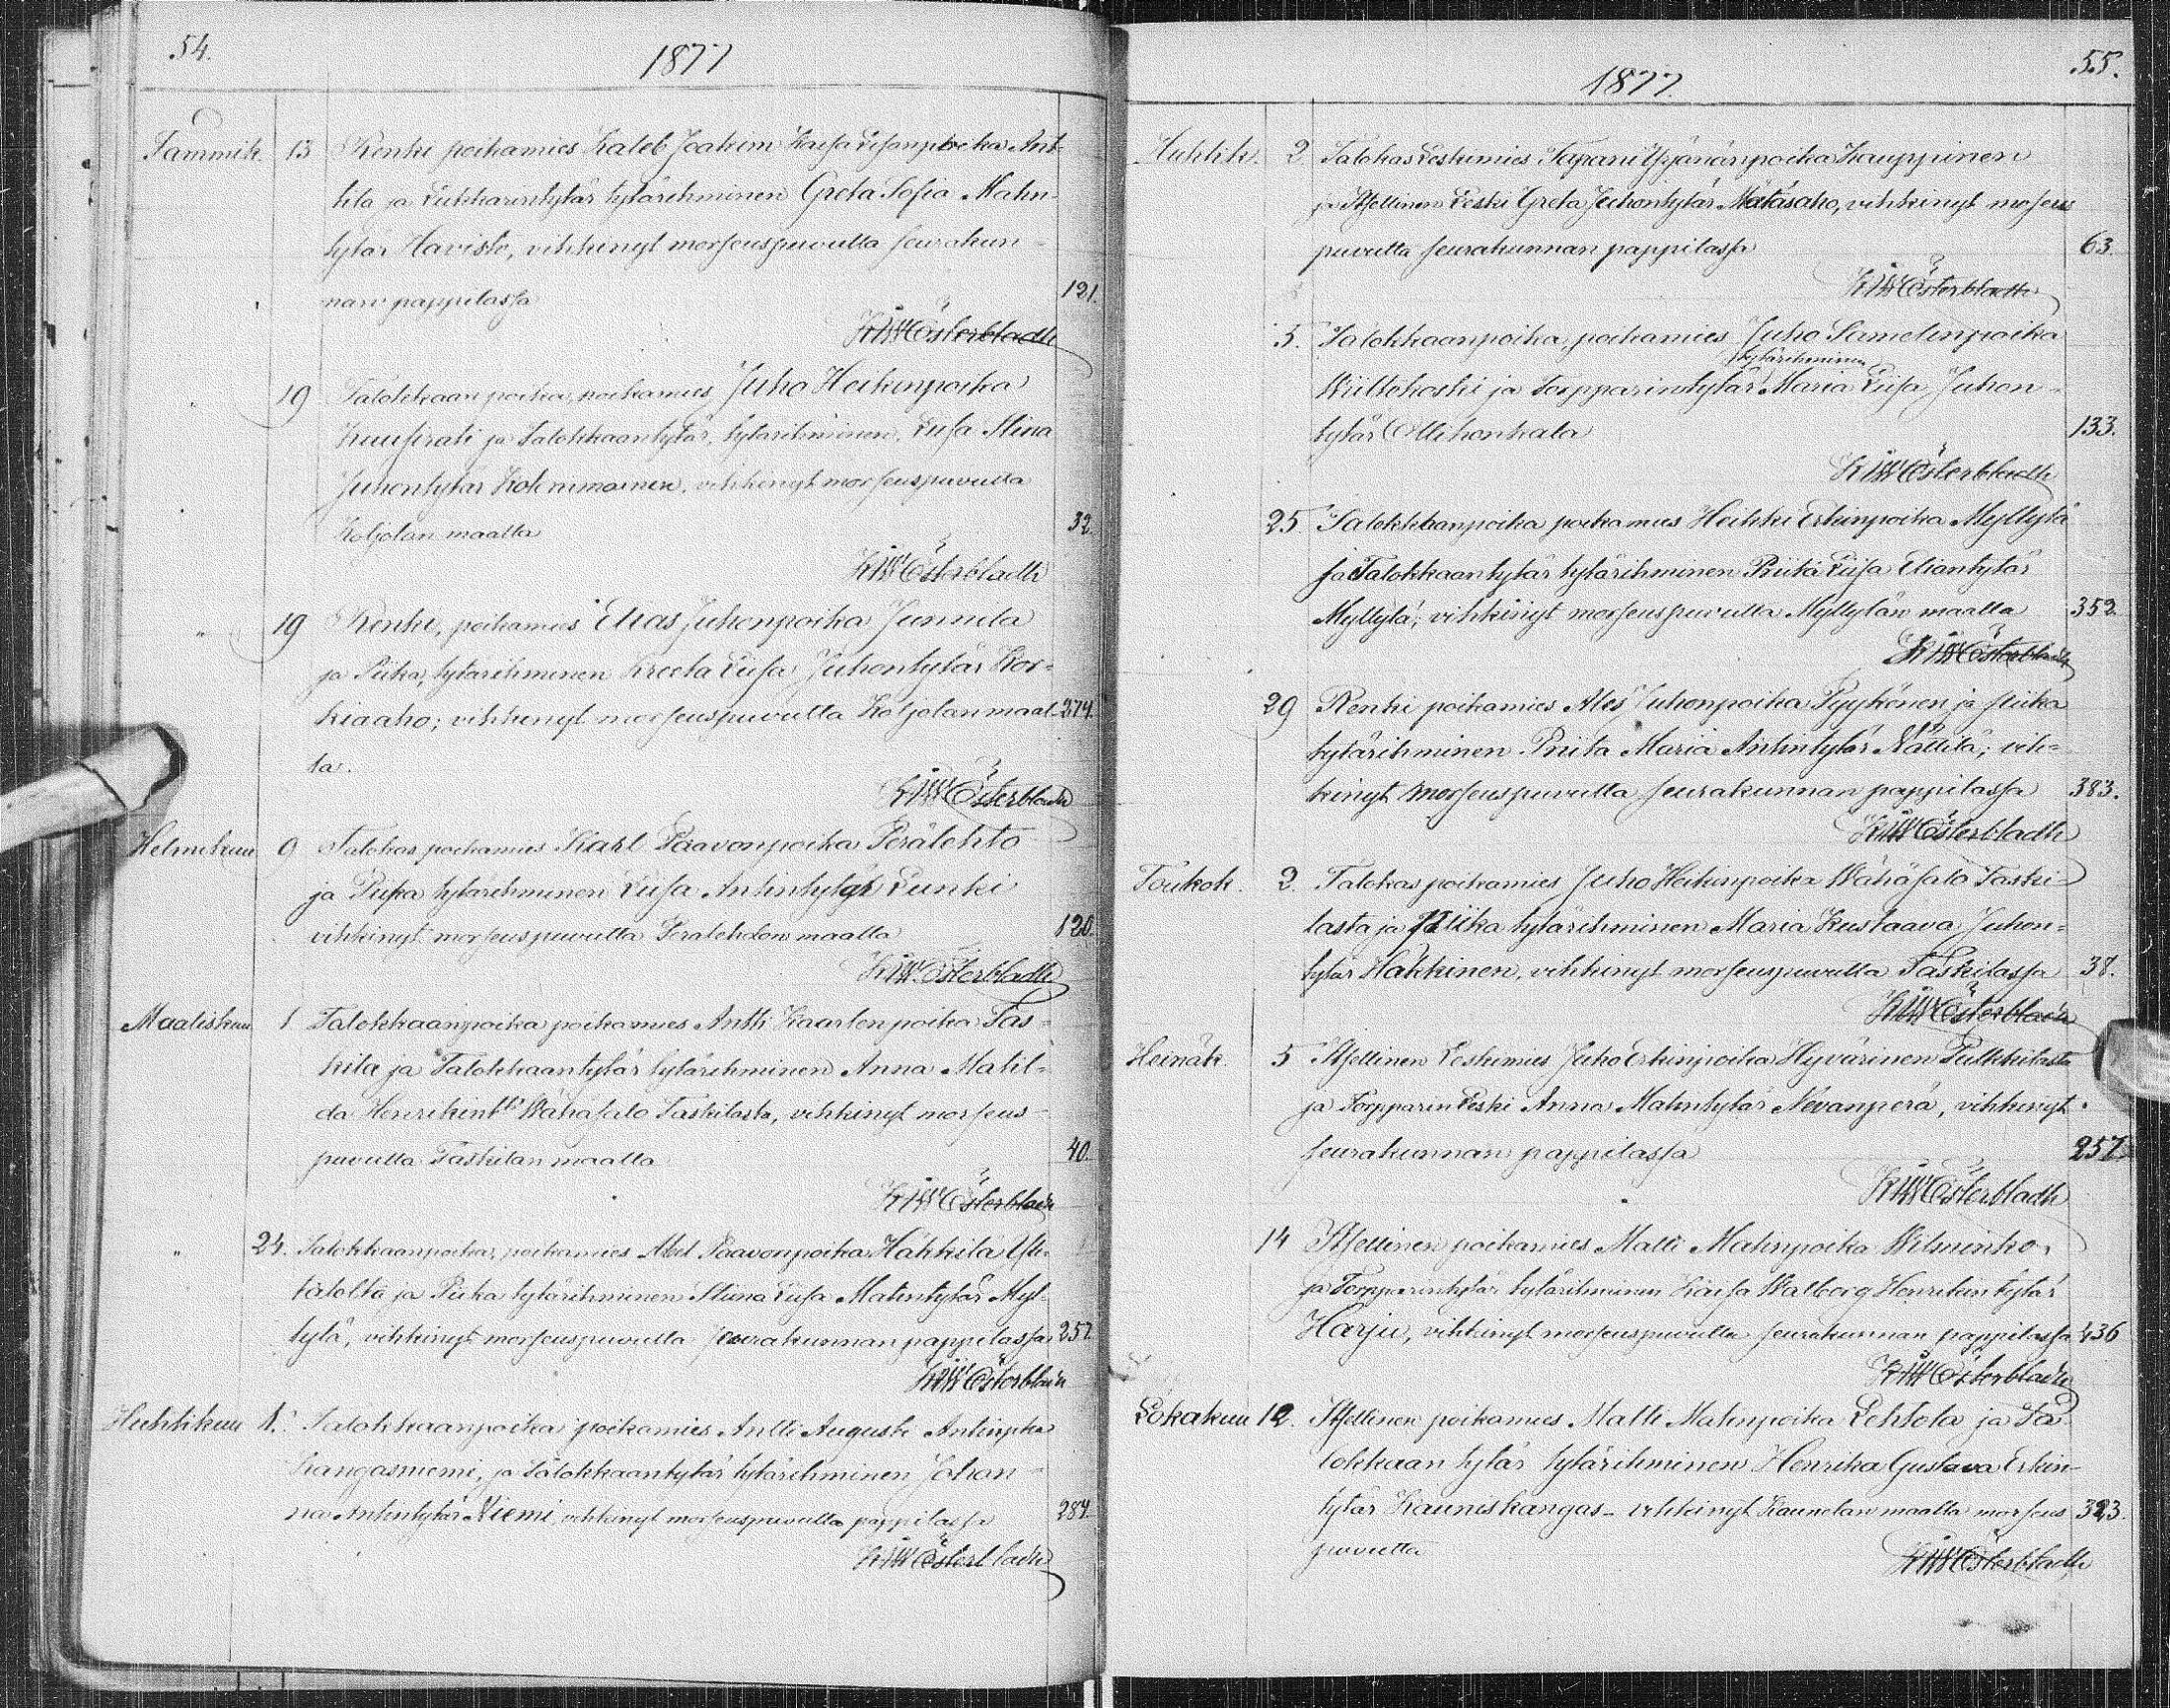 54.
1877
Tammik. 13 Renki poikamies Kaleb Joakim Kaisa Liisanpoika Ant-
tila ja Lukkarintytär tytärihminen Greta Sofia Matin-
tytär Havisto, vihkinyt morseuspuvutta seurakun-
nan pappilassa 121.
KWÖsterbladh
19 Talokkaan poika, poikamies Juho Heikinpoika
ja Talokkaantytär, tytärihminen, Liisa Stina
Juhontytär Kokemmainen, vihkinyt morseuspuvutta
Koljolan maalla 32.
KWÖsterbladh
" 19 Renki, poikamies Elias Juhonpoika Junnila
ja Piika, tytärihminen Kreeta Liisa Juhontytär Kor-
kiaaho; vihkinyt morseuspuvutta Koljolan maal- 274.
la.
KWÖsterbladh
Helmikuu 9 Talokas poikamies Karl Paavonpoika Perälehto
ja Piika tytärihminen Liisa Antintytär Lunki
vihkinyt morseuspuvutta Peralehdon maalla 120.
KWÖsterbladh
Maaliskuu 1 Talokkaanpoika poikamies Antti Kaarlenpoika Tas-
kila ja Talokkaantytär tytärihminen Anna Matil-
da Henrikint:r Wähäsalo Taskilasta, vihkinyt morseus-
puvutta Taskilan maalla 40.
KWÖsterbladh
" 24. Talokkaanpoika, poikamies Abel Paavonpoika Häkkilä Yli-
talolta ja Piika tytärihminen Stiina Liisa Matintytär Myl-
lylä, vihkinyt morseuspuvutta seurakunnan pappilassa 257.
KWÖsterbladh
Huhtikuu 1. Talokkaanpoika poikamies Antti Augusti Antinpka
Kangasniemi, ja Talokkaantytär tytärihminen Johan-
na Antintytär Niemi, vihkinyt morseuspuvutta pappilassa 284.
KWÖsterbladh
55.
1877.
Huhtik. 2. Talokas Leskimies Tapani Yrjänänpoika Kauppinen
ja Itsellinen Leski Greta Juhontytär Mätäsaho, vihkinyt morseus
puvutta seurakunnan pappilassa 63.
KWÖsterbladh
5. Talokkaanpoika, poikamies Juho Samelinpoika
tytärihminen
Wiitokoski ja Torpparintytär Maria Liisa Juhon-
tytär Ollikonkala 133.
KWÖsterbladh
25 Talokkaanpoika poikamies Heikki Erkinpoika Myllylä
ja Talokkaantytär tytärihminen Priita Liisa Eliantytär
Myllylä; vihkinyt morseuspuvutta Myllylän maalla 352.
KWÖsterbladh
29 Renki poikamies Ales Juhonpoika Pyykönen ja piika
tytärihminen Priita Maria Antintytär Nättilä; vih-
kinyt morseuspuvutta seurakunnan pappilassa 383.
KWÖsterbladh
Toukok. 2. Talokas poikamies Juho Heikinpoika Wähäsalo Taski-
lasta ja piika tytärihminen Maria Kustaava Juhon-
tytär Häkkinen, vihkinyt morseuspuvutta Taskilassa 38.
KWÖsterbladh
Heinäk. 5 Itsellinen Leskimies Juho Erkinpoika Hyvärinen Pulkkilasta
ja Torpparin Leski Anna Matintytär Nevanperä, vihkinyt
seurakunnan pappilassa 257.
KWÖsterbladh
14 Itsellinen poikamies Matti Matinpoika Wilminko,
ja Torpparintytär tytärihminen Kaisa Walborg Henrikintytär
Harju, vihkinyt morseuspuvutta seurakunnan pappilassa 436
KWÖsterbladh
Lokakuu 12. Itsellinen poikamies Matti Matinpoika Lehtola ja Ta-
lokkaan tytär tytärihminen Henrika Gustava Erkin-
tytär Kauniskangas - vihkinyt Kaunelan maalla morseus 323.
puvutta
KWÖsterbladh